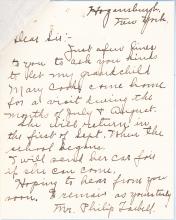 Hogansburg,
New York.
Dear Sir:-
Just a few lines
to you to ask you kindly
to let my grandchild
Mary come home
for a visit during the
months of July & August.
She will return in
the first of Sept. When the
school begins.
I will send her car fare
if she can come,
Hoping to hear from you
soon. I remain as yours truly
Mrs. Philip